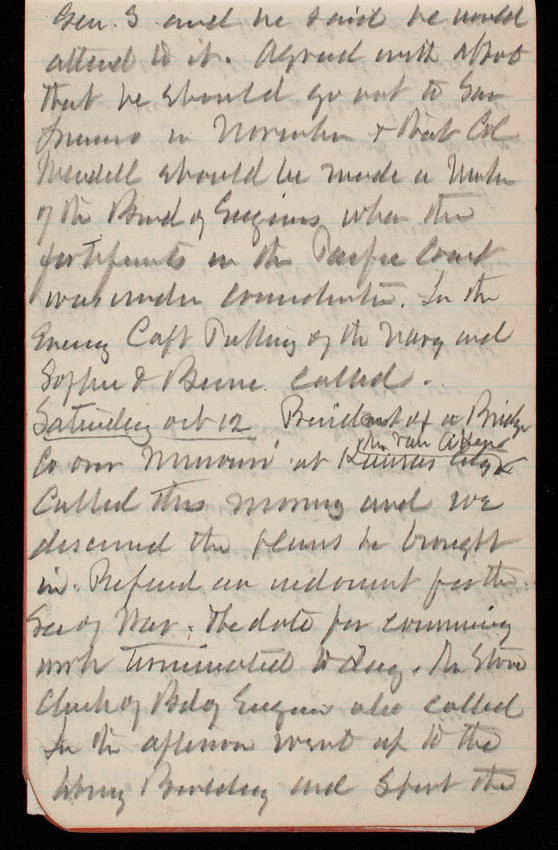 Gen. S and he said he would
attend to it. Agreed with Abbot
that he should go out to San
in November & that Col
Mendell should be made a
of the Board of Engineers when the
in the Pacific Coast
was under consideration. In the
Evening Capt of the Navy and
Sophie & called.
Saturday Oct 12 President of a Bridge
Co over Missouri at Kansas City
Called this morning and we
discussed the plans he brought
in. Prepared an indorsment for the
Sec of War. The date for commencing
work terminated to day. Mr Stone
Clerk of Bd of Engineers also called
In the afternoon went up to the
library Building and spent the